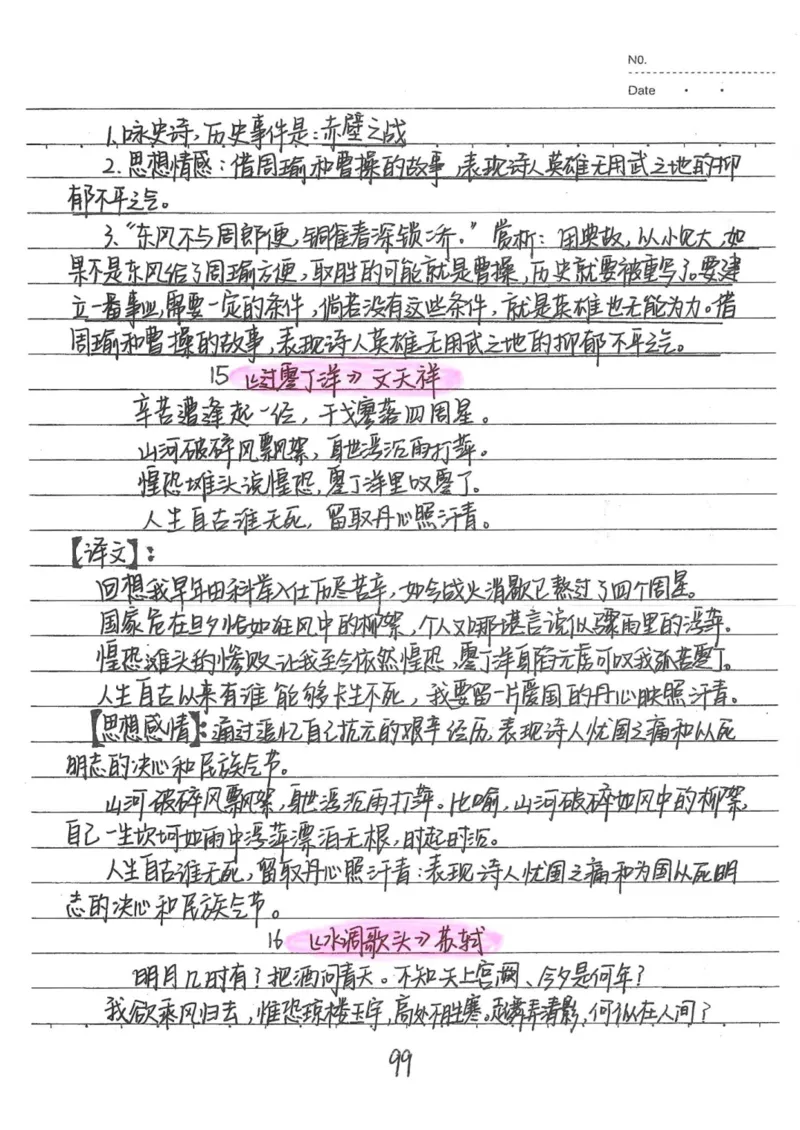 NO.
Date
1.咏史诗,历史事件是:赤壁之战
2.思想情感:借周瑜和曹操的故事,表现诗人英雄无用武之地的抑
郁不平之气。
3.“东风不与周郎便,铜雀春深锁二乔。”赏析:用典故,从小见大,如
果不是东风给了周瑜方便,取胜的可能就是曹操,历史就要被重写了。要建
立一番事业,需要一定的条件,倘若没有这些条件,就是英雄也无能为力。借
周瑜和曹操的故事,表现诗人英雄无用武之地的抑郁不平之气。
15《过零丁洋》文天祥
辛苦遭逢起一经,干戈寥落四周星。
山河破碎风飘絮,身世浮沉雨打萍。
惶恐滩头说惶恐,零丁洋里叹零丁。
人生自古谁无死,留取丹心照汗青。
【译文】:
回想我早年由科举入仕历尽苦辛,如今战火消歇已熬过了四个周星。
国家危在旦夕恰如狂风中的柳絮,个人又哪堪言说似骤雨里的浮萍。
惶恐滩头的惨败让我至今依然惶恐,零丁洋身陷元虏可叹我孤苦零丁。
人生自古以来有谁能够长生不死,我要留一片爱国的丹心映照汗青。
【思想感情】:通过追忆自己抗元的艰辛经历,表现诗人忧国之痛和以死
明志的决心和民族气节。
山河破碎风飘絮,身世浮沉雨打萍。比喻,山河破碎如风中的柳絮,
自己一生坎坷如雨中浮萍漂泊无根,时起时沉。
人生自古谁无死,留取丹心照汗青:表现诗人忧国之痛和为国以死明
志的决心和民族气节。
16《水调歌头》苏轼
明月几时有?把酒问青天。不知天上宫阙、今夕是何年?
我欲乘风归去,惟恐琼楼玉宇,高处不胜寒。起舞弄清影,何似在人间?
99